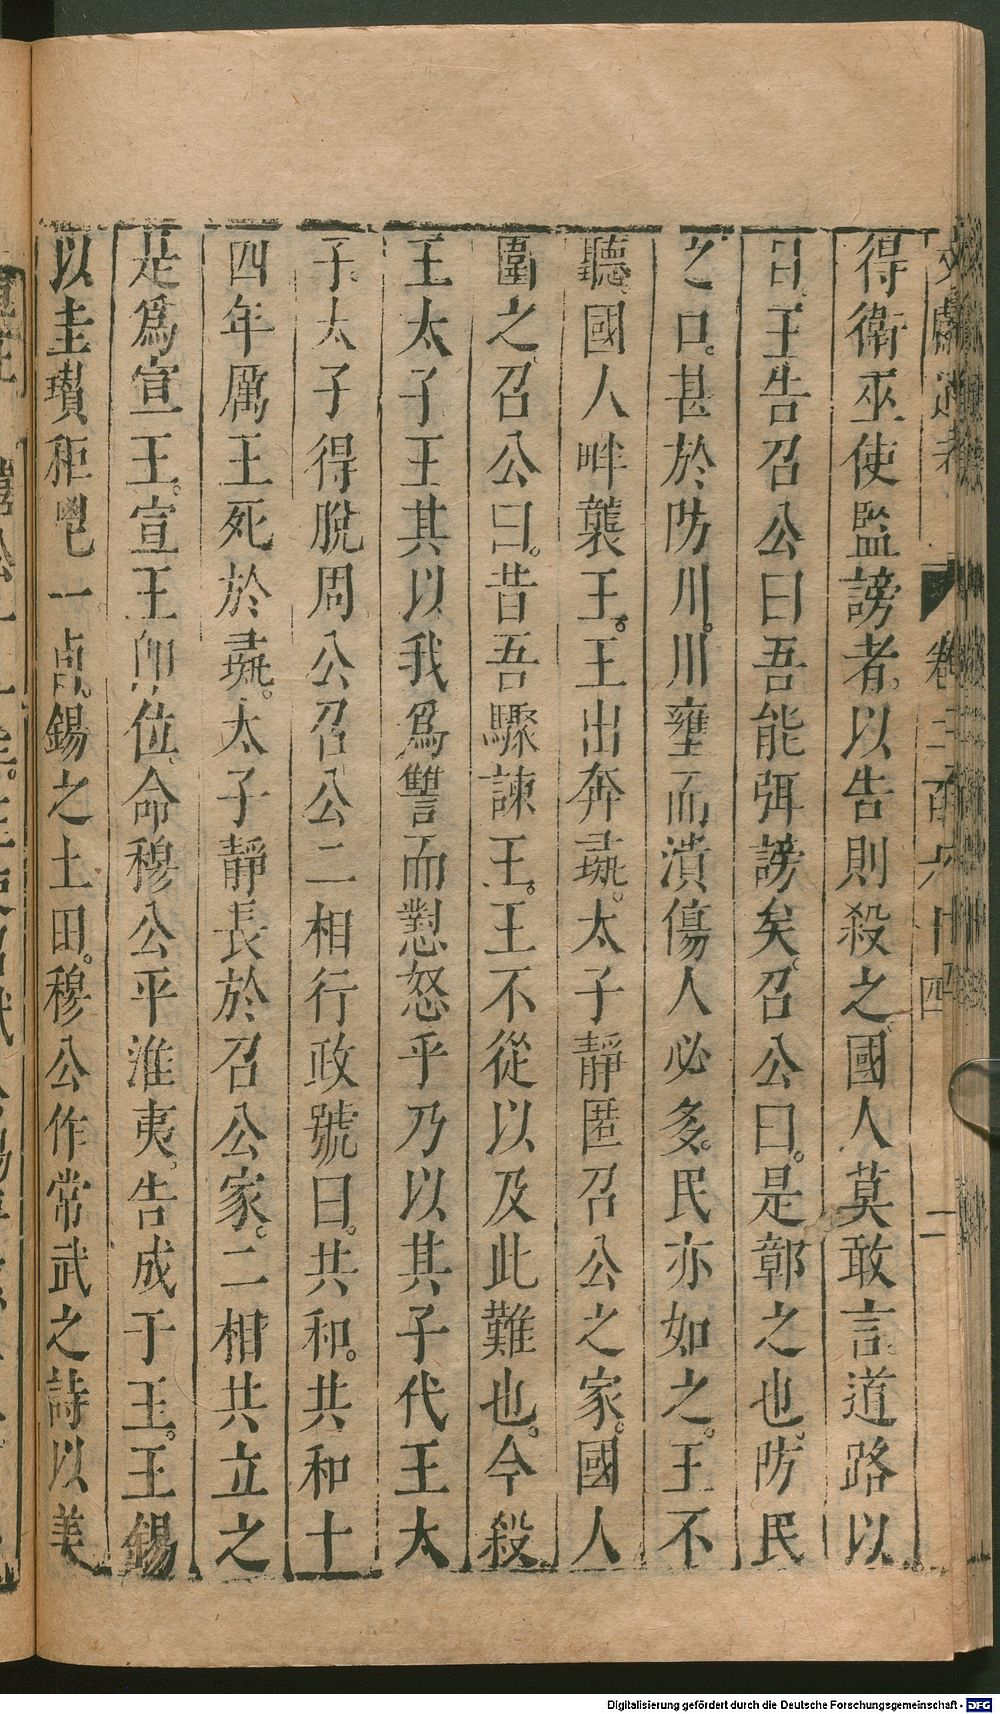 文獻通考
卷二百六十四
二
得衛巫使監謗者以告則殺之國人莫敢言道路以
目王告召公曰吾能弭謗矣召公曰是鄣之也防民
之口甚於防川川壅而潰傷人必多民亦如之王不
聽國人畔襲王王出奔彘太子靜匿召公之家國人
圍之召公曰昔吾驟諫王王不從以及此難也今殺
王太子王其以我爲讐而懟怒乎乃以其子代王太
子太子得脫周公召公二相行政號曰共和共和十
四年厲王死於彘太子靜長於召公家二相共立之
是爲宣王宣王卽位命穆公平淮夷告成于王王錫
以圭瓚秬鬯一卣錫之土田穆公作常武之詩以美
Digitalisierung gefördert durch die Deutsche Forschungsgemeinschaft - DFG